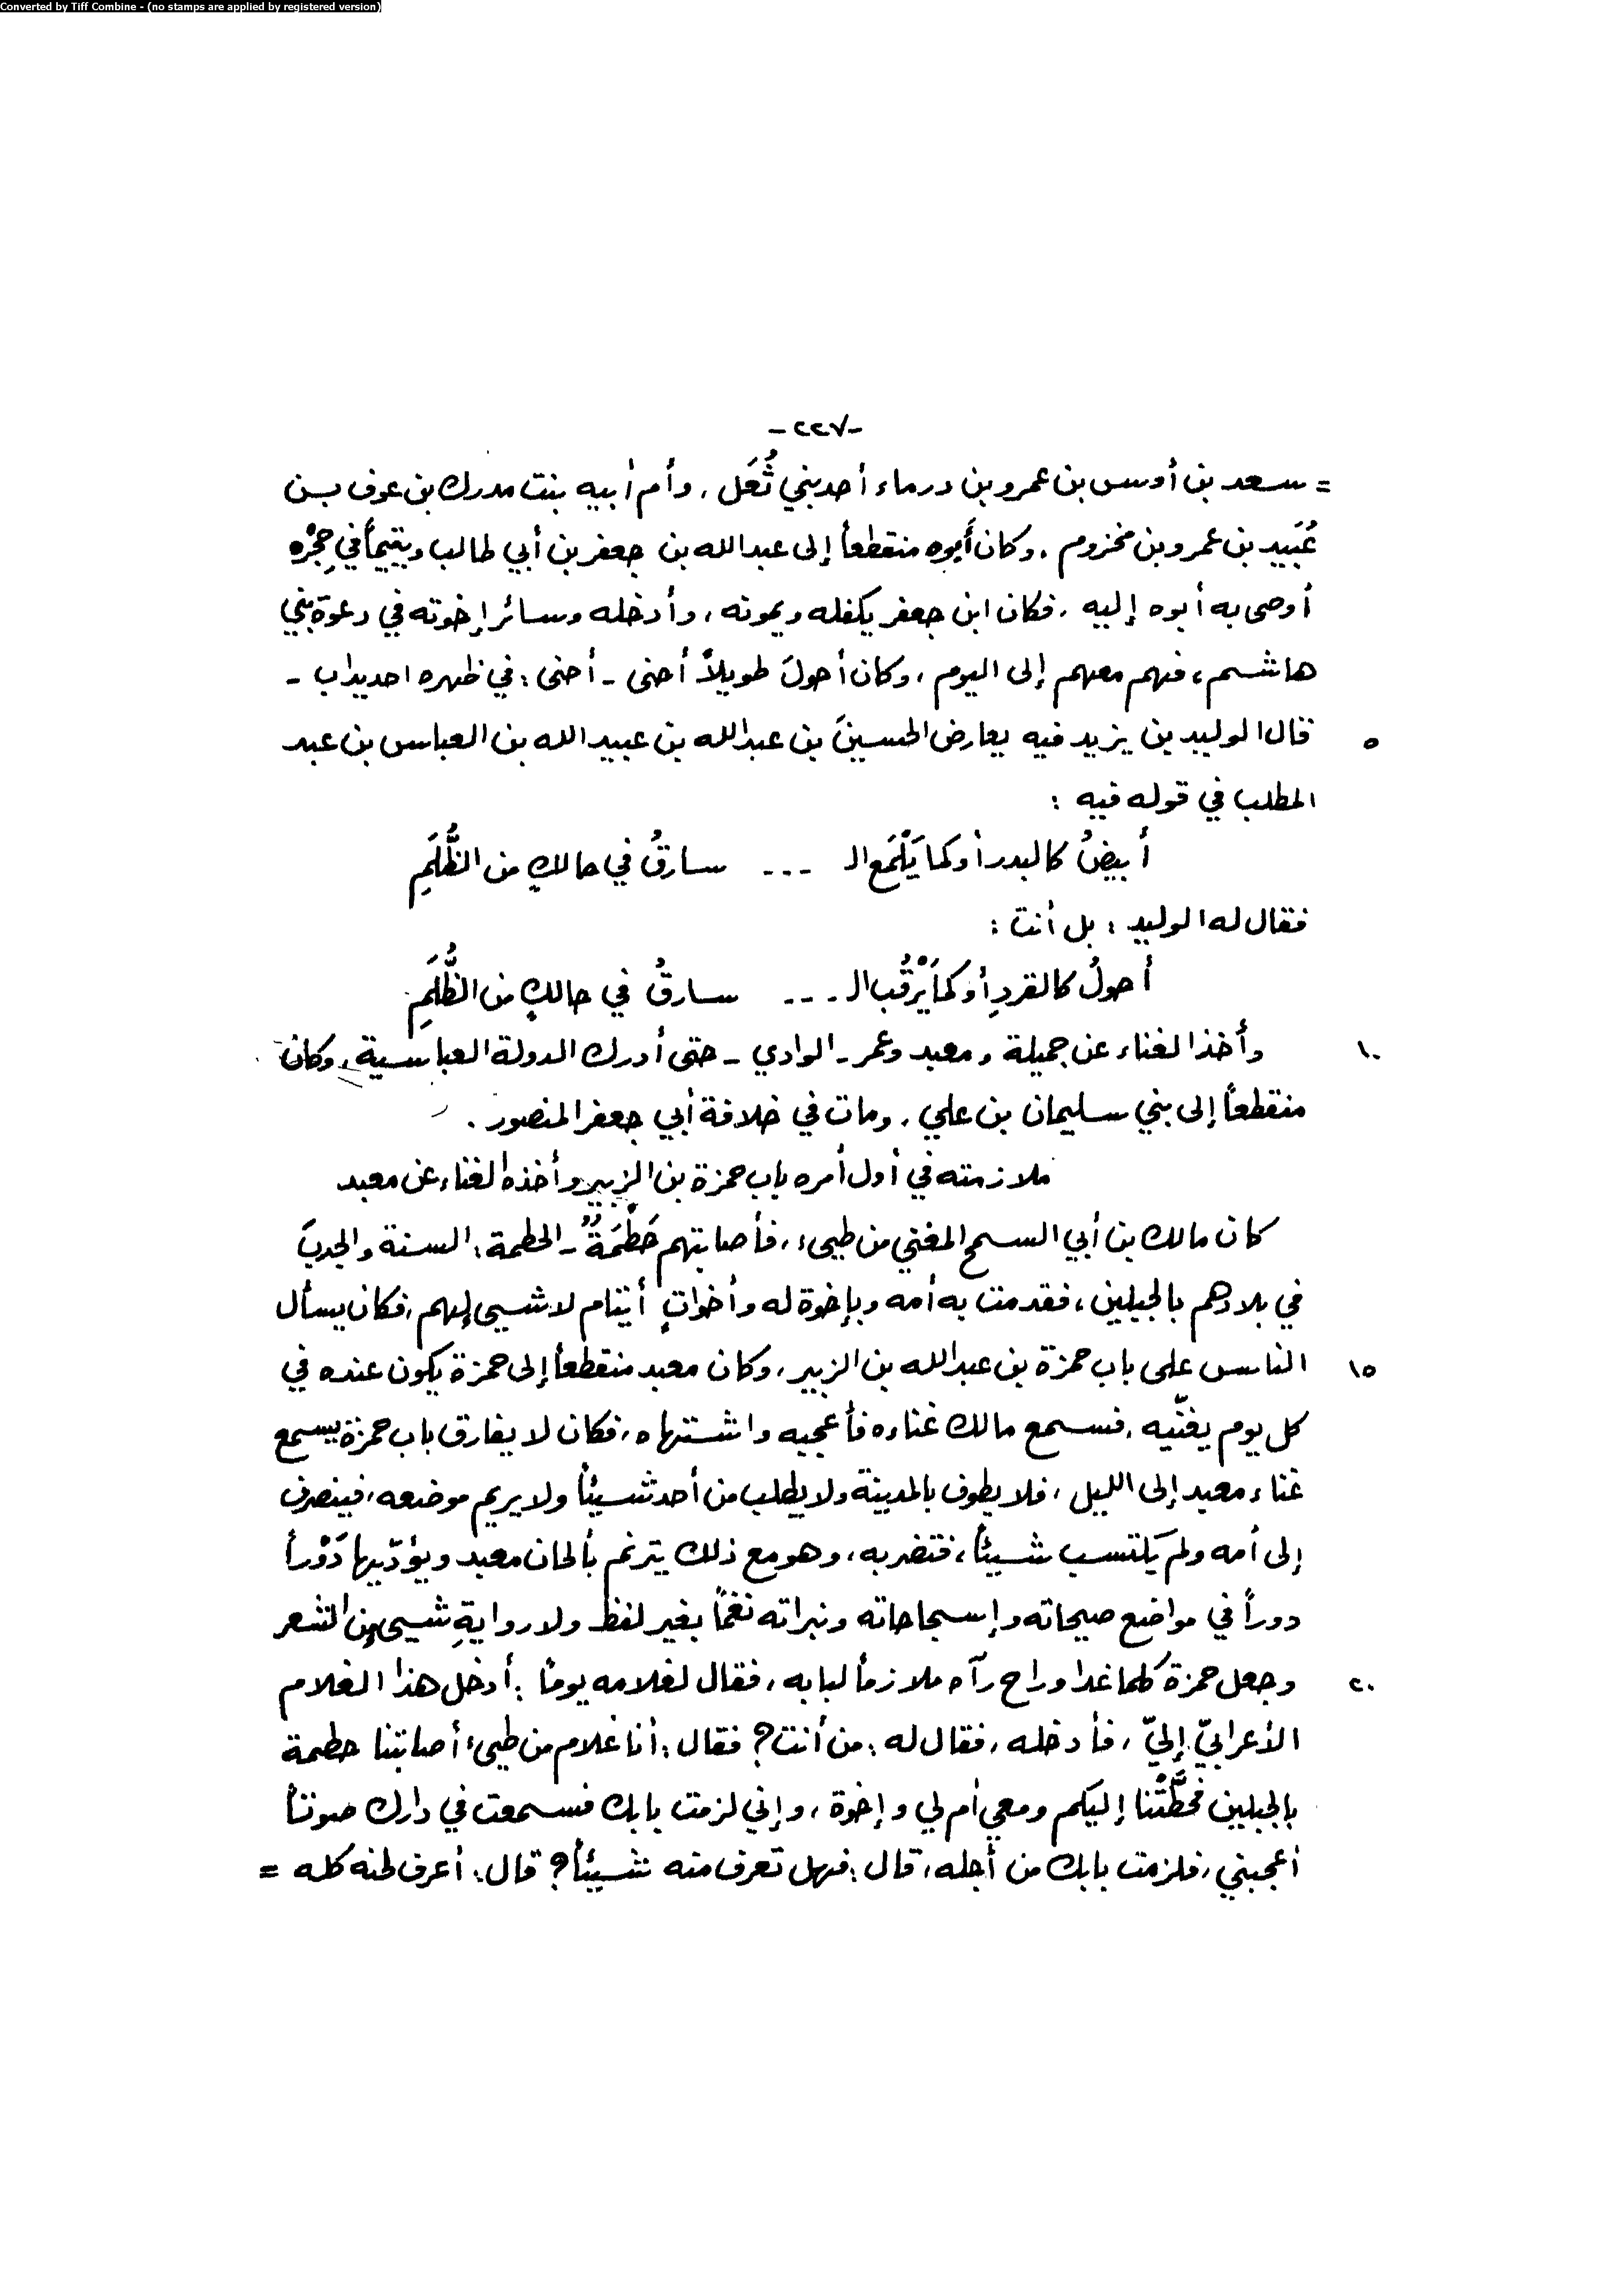 Converted by Tiff Combine - (no stamps are applied by registered version)
-٢٢٧-
= سعد بن أوس بن عمرو بن درماء أحد بني ثُعَل ، وأم أبيه بنت مدرك بن عوف بن
عُبَيد بن عمرو بن مخزوم . وكان أبوه منقطعاً إلى عبدالله بن جعفر بن أبي طالب ويتيماً في حِجْره
أوصى به أبوه إليه ، فكان ابن جعفر يكفله ويمونه ، وأدخله وسائر إخوته في دعوة بني
هاشم ، فهم معهم إلى اليوم ، وكان أحولَ طويلاً أحنى - أحنى : في ظهره احديداب -
٥ قال الوليد بن يزيد فيه يعارض الحسينَ بن عبدالله بن عبيدالله بن العباس بن عبد
المطلب في قوله فيه :
أبيضُ كالبدر أو كما يَلْمَع الـ --- سارقُ في حالكٍ من الظُّلَمِ
فقال له الوليد : بل أنت :
أحولُ كالقردِ أو كما يَرْقُب الـ --- سارقُ في حالكٍ من الظُّلَمِ
١٠ وأخذ الغناء عن جميلة ومعبد وعمر - الوادي - حتى أدرك الدولة العباسية ، وكان
منقطعاً إلى بني سليمان بن علي ، ومات في خلافة أبي جعفر المنصور .
ملازمته في أول أمره باب حمزة بن الزبير وأخذه الغناء عن معبد
كان مالك بن أبي السمح المغني من طيىء ، فأصابتهم حَطْمَةٌ - الحطمة : السنة والجدب
في بلادهم بالجبلين ، فقدمت به أمه وبإخوة له وأخواتٍ أيتام لا شيىء لهم ، فكان يسأل
١٥ الناس على باب حمزة بن عبدالله بن الزبير ، وكان معبد منقطعاً إلى حمزة يكون عنده في
كل يوم يغنّيه ، فسمع مالك غناءه فأعجبه واشتهاه ، فكان لا يفارق باب حمزة يسمع
غناء معبد إلى الليل ، فلا يطوف بالمدينة ولا يطلب من أحد شيئاً ولا يريم موضعه ، فينصرف
إلى أمه ولم يَلتسب شيئاً ، فتضربه ، وهو مع ذلك يترنم بألحان معبد ويؤدّيها دَوْراً
دوراً في مواضع صيحاته وإسجاحاته ونبراته نغماً بغير لفظ ولا روايةِ شيىء من الشعر
٢٠ وجعل حمزة كلما غدا وراح رآه ملازماً لبابه ، فقال لغلامه يوماً : أدخل هذا الغلام
الأعرابيّ إليّ ، فأدخله ، فقال له : من أنت ؟ فقال : أنا غلام من طيىء أصابتنا حطمة
بالجبلين فحطَّتْنا إليكم ومعي أم لي وإخوة ، وإني لزمت بابك فسمعت في دارك صوتاً
أعجبني ، فلزمت بابك من أجله ، قال : فهل تعرف منه شيئاً ؟ قال : أعرف لحنه كله =